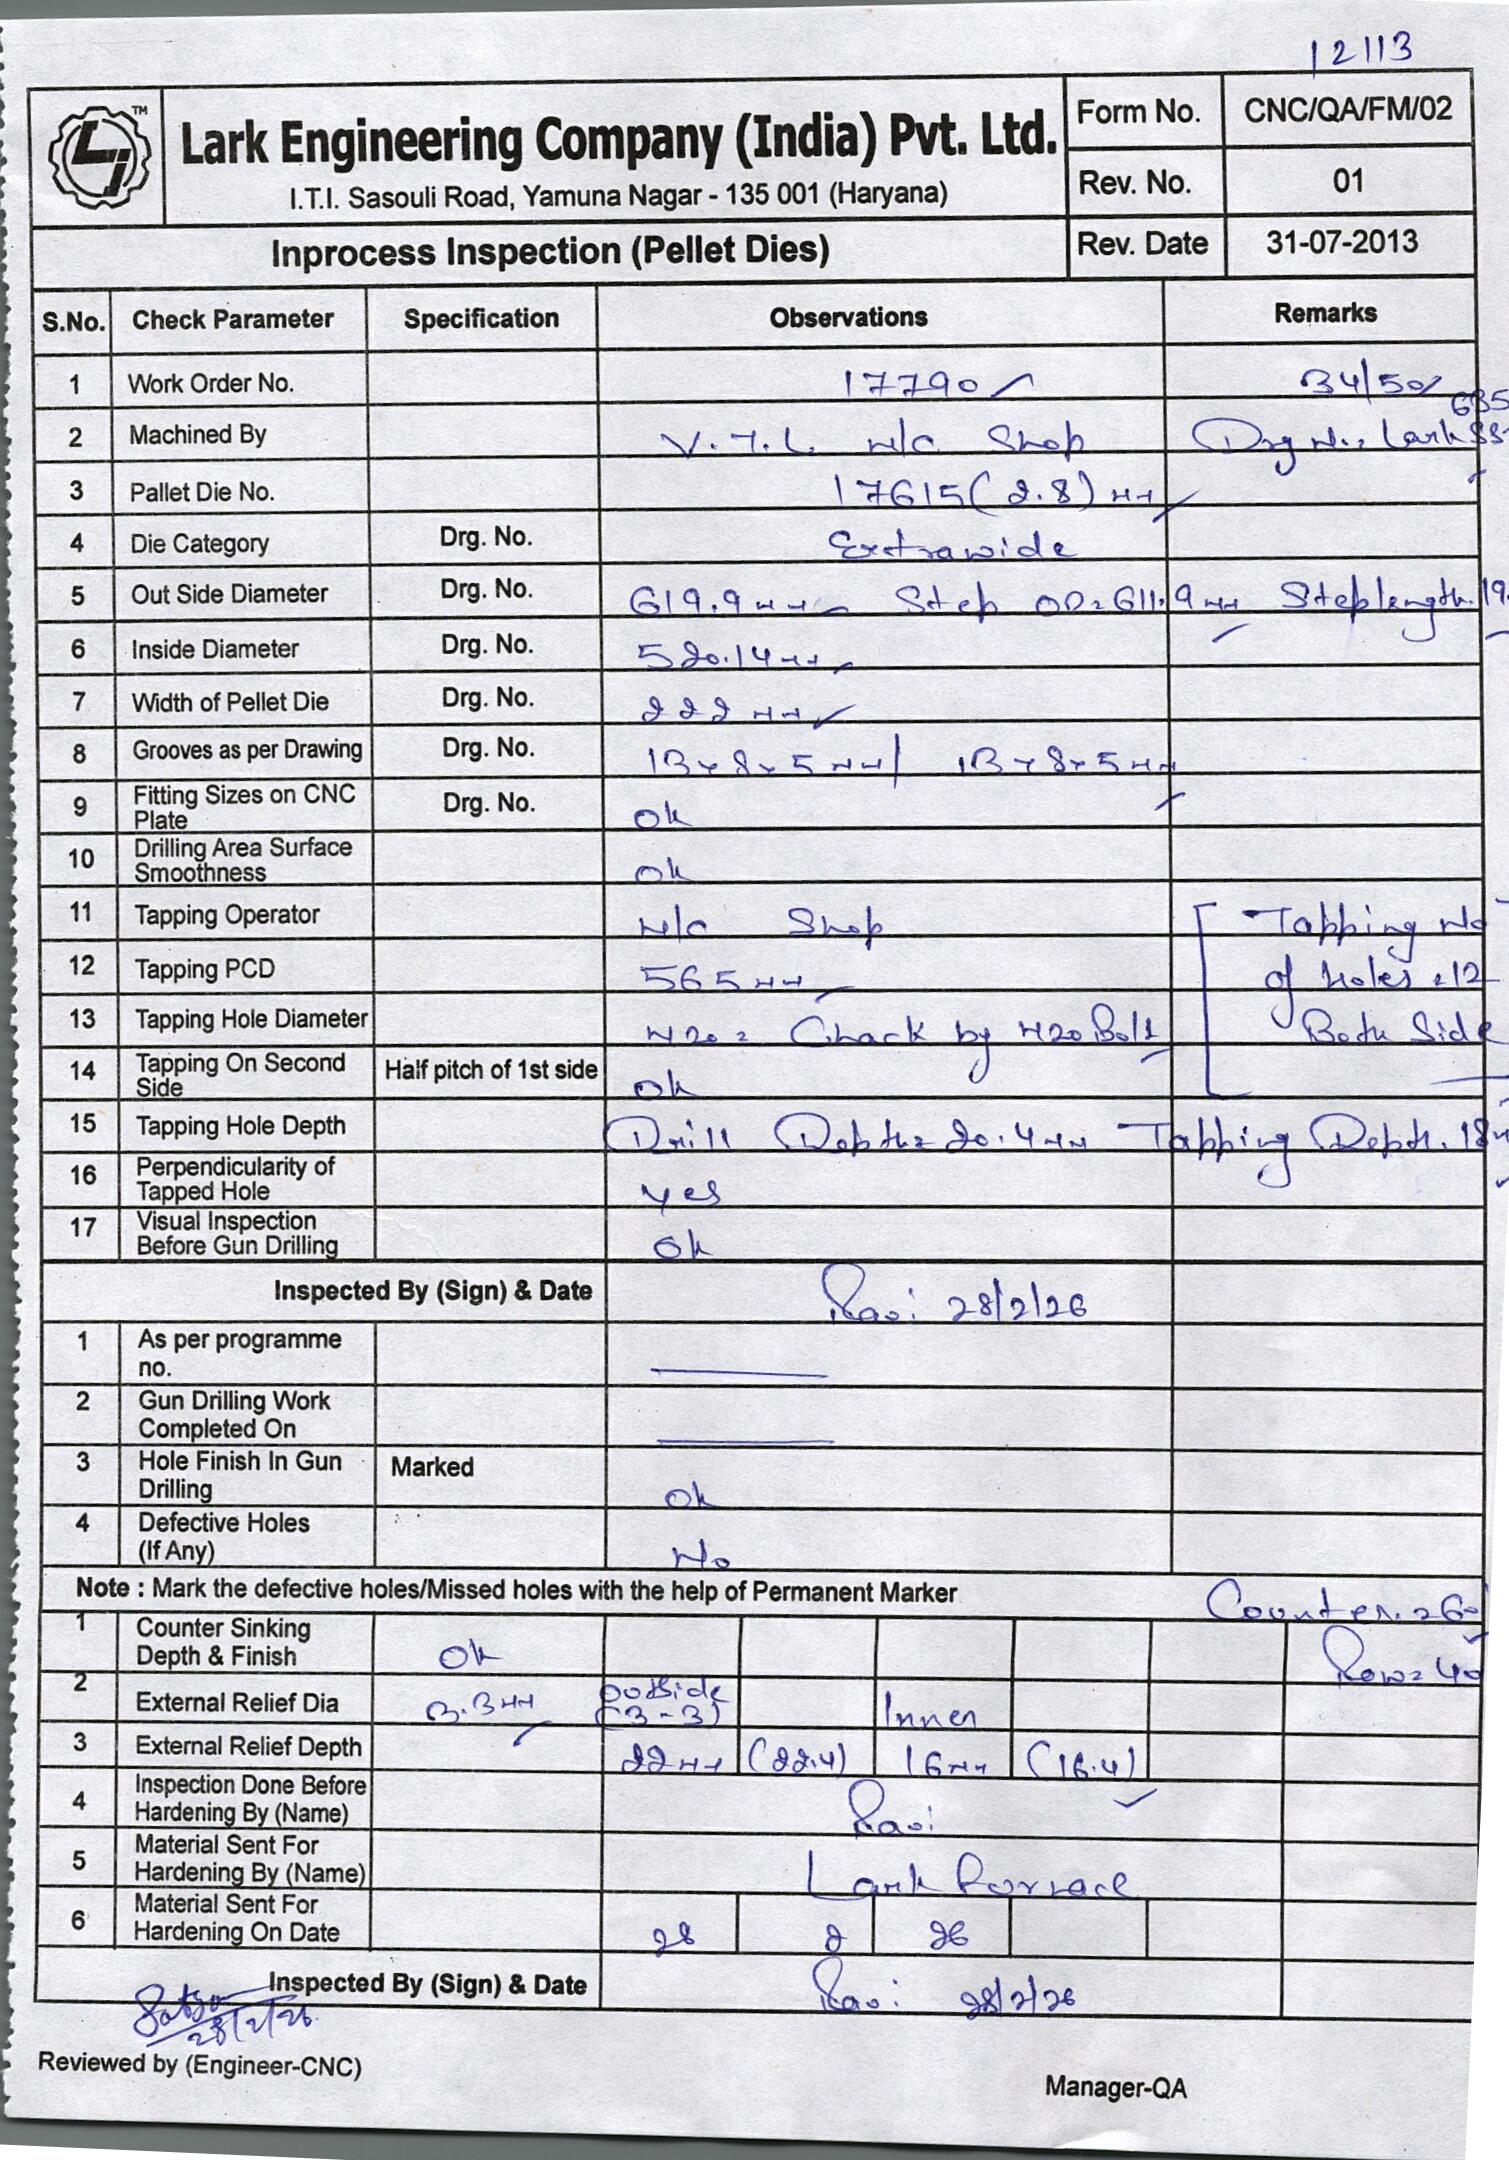 12113
TM
Lark Engineering Company (India) Pvt. Ltd.
I.T.I. Sasouli Road, Yamuna Nagar - 135 001 (Haryana)
Form No. CNC/QA/FM/02
Rev. No. 01
Inprocess Inspection (Pellet Dies)
Rev. Date 31-07-2013
S.No. Check Parameter Specification Observations Remarks
1 Work Order No. 17790 34/50
2 Machined By V.T.L. M/C Shop Drg No. Lark
3 Pallet Die No. 17615(2.8) mm
4 Die Category Drg. No. Extrawide
5 Out Side Diameter Drg. No. 619.9mm Step OD=611.9mm Steplength. 19.
6 Inside Diameter Drg. No. 520.14mm
7 Width of Pellet Die Drg. No. 222mm
8 Grooves as per Drawing Drg. No. 13x8x5mm/ 13x8x5mm
9 Fitting Sizes on CNC Plate Drg. No. Ok
10 Drilling Area Surface Smoothness Ok
11 Tapping Operator M/C Shop Tapping No
12 Tapping PCD 565mm of holes =12
13 Tapping Hole Diameter M20= Chack by M20 Bolt Both Side
14 Tapping On Second Side Half pitch of 1st side Ok
15 Tapping Hole Depth Drill Depth=20.4mm Tapping Depth. 18
16 Perpendicularity of Tapped Hole Yes
17 Visual Inspection Before Gun Drilling Ok
Inspected By (Sign) & Date Ravi 28/2/26
1 As per programme no.
2 Gun Drilling Work Completed On
3 Hole Finish In Gun Drilling Marked Ok
4 Defective Holes (If Any) No
Note : Mark the defective holes/Missed holes with the help of Permanent Marker Counter. =60
1 Counter Sinking Depth & Finish Ok Row=40
2 External Relief Dia 3.3mm Outside (3-3) Inner
3 External Relief Depth 22mm (22.4) 16mm (16.4)
4 Inspection Done Before Hardening By (Name) Ravi
5 Material Sent For Hardening By (Name) Lark Fornace
6 Material Sent For Hardening On Date 28 2 26
Inspected By (Sign) & Date Ravi 28/2/26
28/2/26
Reviewed by (Engineer-CNC)
Manager-QA